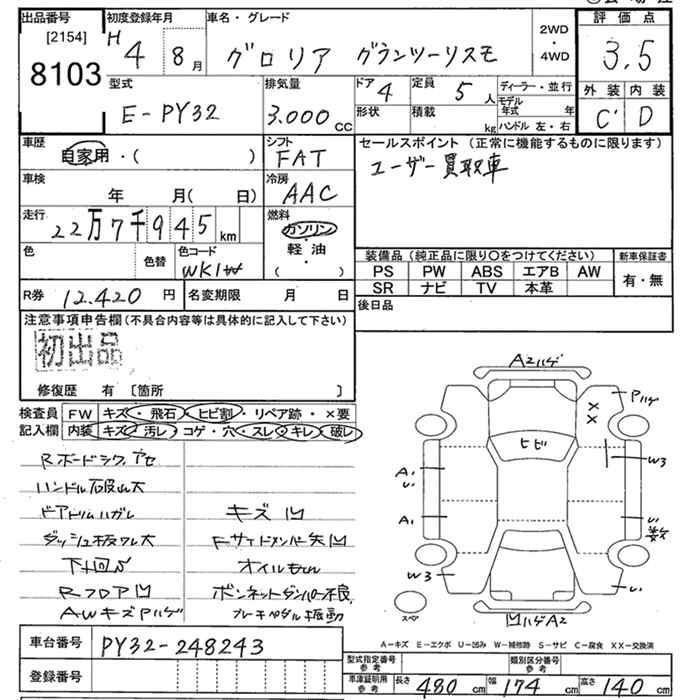 出品番号 初度登録年月 車名・グレード 評価点
[2154] H 4 8月 グロリア グランツーリスモ 2WD・4WD 3.5
8103
型式 排気量 ドア 4 定員 5人 ディーラー・並行 外装 内装
E-PY32 3.000cc 形状 積載 kg モデル年式 年 C' D
ハンドル 左・右
車歴 シフト セールスポイント (正常に機能するものに限ります)
自家用・( ) FAT ユーザー買取車
車検 冷房
年 月( 日) AAC
走行 燃料
22万7千945km ガソリン
色 色替 色コード 軽油 装備品 (純正品に限り○をつけてください) 新車保証書
WK1 ・ PS PW ABS エアB AW 有・無
( ) SR ナビ TV 本革
R券 12.420円 名変期限 月 日 後日品
注意事項申告欄(不具合内容等は具体的に記入して下さい)
初出品
修復歴 有 〔箇所 〕
検査員 FW キズ・飛石・ヒビ割・リペア跡・×要
記入欄 内装 キズ・汚レ・コゲ・穴・スレ・キレ・破レ
Rボード
ハンドル 大
ドアトリムハガレ キズ凹
ダッシュ板ワレ大 Fサイドメンバー 凹
下廻 オイルもれ
Rフロア凹 ボンネットダンパー不良
AWキズPハゲ ブレーキペダル振動
A2ハゲ
Pハゲ
XX
ヒビ
W3
A1
U1
A1
U1
数
W3
U1
スペア
凹ハゲA2
A-キズ E-エクボ U-凹み W-補修跡 S-サビ C-腐食 XX-交換済
車台番号 PY32-248243
登録番号
型式指定番号参考 類別区分番号参考
車庫証明用参考 長さ 480cm 幅 174cm 高さ 140cm